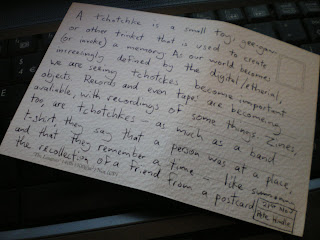 A tchotchke is a small toy, gee-gaw
or other trinket that is used to create
(or invoke) a memory. As our world becomes
increasingly defined by the digital/etherial,
we are seeing tchotckes become important
objects. Records and even tapes are becoming
available, with recordings of some things. Zines,
too, are tchotchkes – as much as a band
t-shirt, they say that a person was at a place,
and that they remember a time – like
the recollection of a friend from a postcard